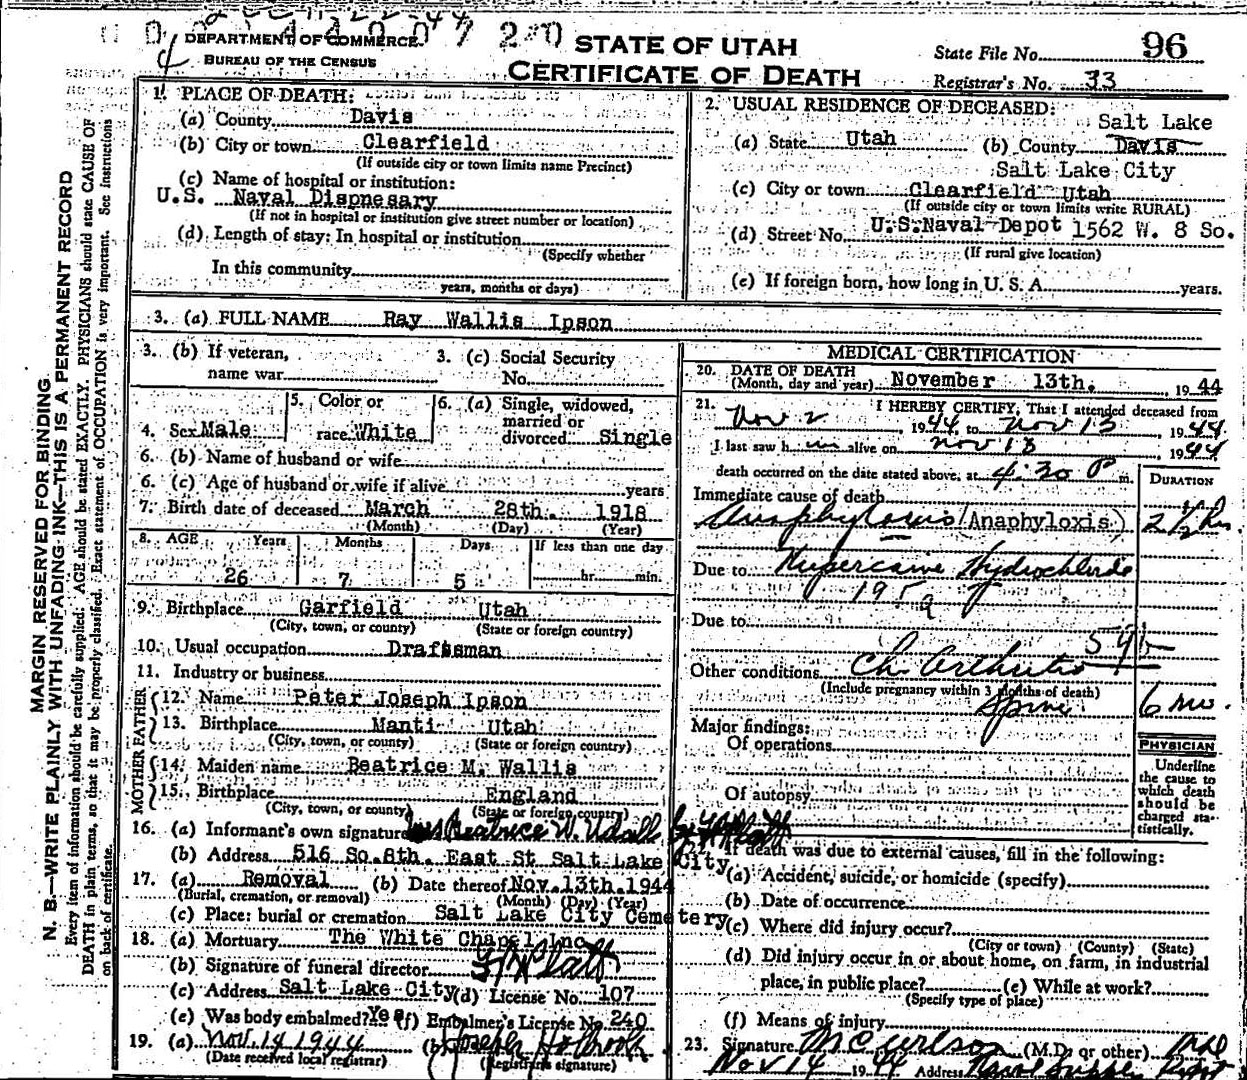 DEPARTMENT OF COMMERCE
BUREAU OF THE CENSUS
STATE OF UTAH
CERTIFICATE OF DEATH
State File No. 96
Registrar's No. 33
MARGIN RESERVED FOR BINDING
N. B.—WRITE PLAINLY WITH UNFADING INK—THIS IS A PERMANENT RECORD
Every item of information should be carefully supplied. AGE should be stated EXACTLY. PHYSICIANS should state CAUSE OF
DEATH in plain terms, so that it may be properly classified. Exact statement of OCCUPATION is very important. See instructions
on back of certificate.
1. PLACE OF DEATH:
(a) County Davis
(b) City or town Clearfield
(If outside city or town limits name Precinct)
(c) Name of hospital or institution:
U.S. Naval Dispnesary
(If not in hospital or institution give street number or location)
(d) Length of stay: In hospital or institution
(Specify whether
In this community
years, months or days)
2. USUAL RESIDENCE OF DECEASED:
Salt Lake
(a) State Utah (b) County Davis
Salt Lake City
(c) City or town Clearfield Utah
(If outside city or town limits write RURAL)
(d) Street No. U.S.Naval Depot 1562 W. 8 So.
(If rural give location)
(e) If foreign born, how long in U. S. A. years.
3. (a) FULL NAME Ray Wallis Ipson
3. (b) If veteran,
name war
3. (c) Social Security
No.
4. Sex Male
5. Color or
race White
6. (a) Single, widowed,
married or
divorced Single
6. (b) Name of husband or wife
6. (c) Age of husband or wife if alive years
7. Birth date of deceased March 28th. 1918
(Month) (Day) (Year)
8. AGE Years Months Days If less than one day
26 7 5 hr. min.
9. Birthplace Garfield Utah
(City, town, or county) (State or foreign country)
10. Usual occupation Drafssman
11. Industry or business
FATHER
12. Name Peter Joseph Ipson
13. Birthplace Manti Utah
(City, town, or county) (State or foreign country)
MOTHER
14. Maiden name Beatrice M. Wallis
15. Birthplace England
(City, town, or county) (State or foreign country)
16. (a) Informant's own signature Mrs Beatrice W. Udall by
(b) Address 516 So.8th. East St Salt Lake City
17. (a) Removal (b) Date thereof Nov.13th.1944
(Burial, cremation, or removal) (Month) (Day) (Year)
(c) Place: burial or cremation Salt Lake City Cemetery
18. (a) Mortuary The White Chapel Inc
(b) Signature of funeral director
(c) Address Salt Lake City (d) License No. 107
(e) Was body embalmed? Yes (f) Embalmer's License No. 240
19. (a) Nov. 14 1944 (b) Joseph Holbrook
(Date received local registrar) (Registrar's signature)
MEDICAL CERTIFICATION
20. DATE OF DEATH
(Month, day and year) November 13th. 1944
21. I HEREBY CERTIFY, That I attended deceased from
Nov 2 1944 to Nov 13, 1944
I last saw him alive on Nov 13, 1944
death occurred on the date stated above, at 4:30 P m.
DURATION
Immediate cause of death
Anaphyloxis (Anaphyloxis) 2 1/2 hrs.
Due to Nupercaine Hydrochloride
Due to
Other conditions Ch Arthritis
(Include pregnancy within 3 months of death)
Spine 6 mo.
Major findings:
Of operations
Of autopsy
PHYSICIAN
Underline
the cause to
which death
should be
charged sta-
tistically.
If death was due to external causes, fill in the following:
(a) Accident, suicide, or homicide (specify)
(b) Date of occurrence
(c) Where did injury occur?
(City or town) (County) (State)
(d) Did injury occur in or about home, on farm, in industrial
place, in public place? (e) While at work?
(Specify type of place)
(f) Means of injury
23. Signature (M.D. or other) MD
Nov 14 1944 Address Naval Supply Depot